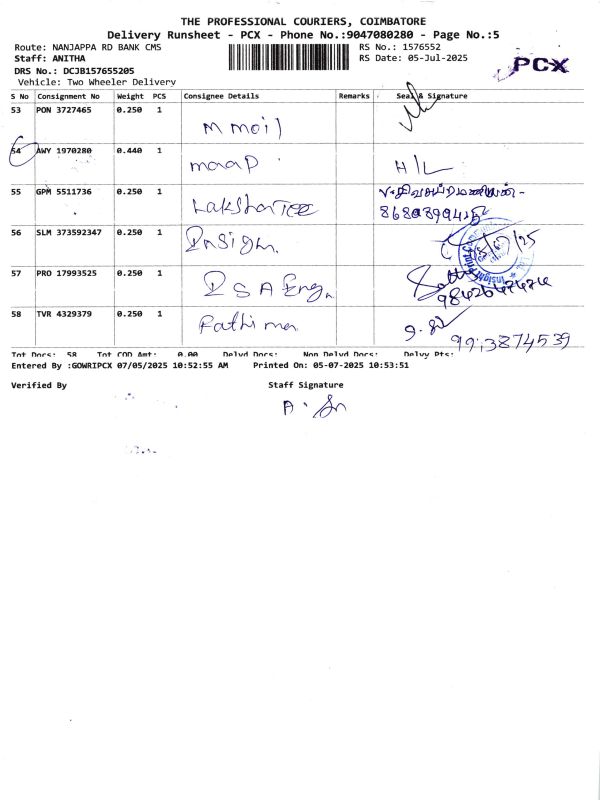 THE PROFESSIONAL COURIERS, COIMBATORE
Delivery Runsheet - PCX - Phone No.:9047080280 - Page No.:5
Route: NANJAPPA RD BANK CMS
RS No.: 1576552
Staff: ANITHA
RS Date: 05-Jul-2025
PCX
DRS No.: DCJB157655205
Vehicle: Two Wheeler Delivery
S No Consignment No Weight PCS Consignee Details Remarks Seal & Signature
53 PON 3727465 0.250 1 M moil
54 AWY 1970280 0.440 1 maap H/L
55 GPM 5511736 0.250 1
56 SLM 373592347 0.250 1 Insign
57 PRO 17993525 0.250 1 P S A Eng
58 TVR 4329379 0.250 1 Fathima
9913874539
Tot Docs: 58 Tot COD Amt: 0.00 Delvd Docs: Non Delvd Docs: Delvy Pts:
Entered By :GOWRIPCX 07/05/2025 10:52:55 AM Printed On: 05-07-2025 10:53:51
Verified By Staff Signature